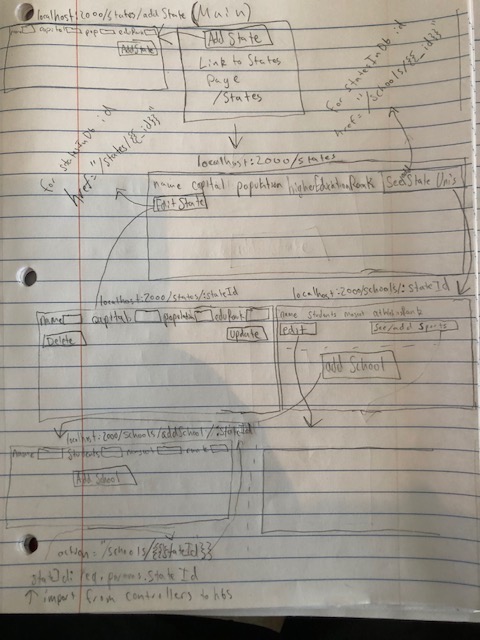 localhost:2000/states/addState (Main)
name capital pop eduRank
Add State
Add State
Link to States
page
/States
for statesInDb :id
href="/states/{{_id}}"
for statesInDb :id
href="/schools/{{_id}}"
localhost:2000/states
name capital population higherEducationRank See State Unis
Edit State
localhost:2000/states/:stateId
name capital population eduRank
Delete Update
localhost:2000/schools/:stateId
name students mascot Rank
edit See/add Sports
add School
:2000/schools/addSchool/:stateId
name students mascot rank
Add School
action="/schools/{{stateId}}
stateId: req.params.stateId
↑ import from controllers to hbs